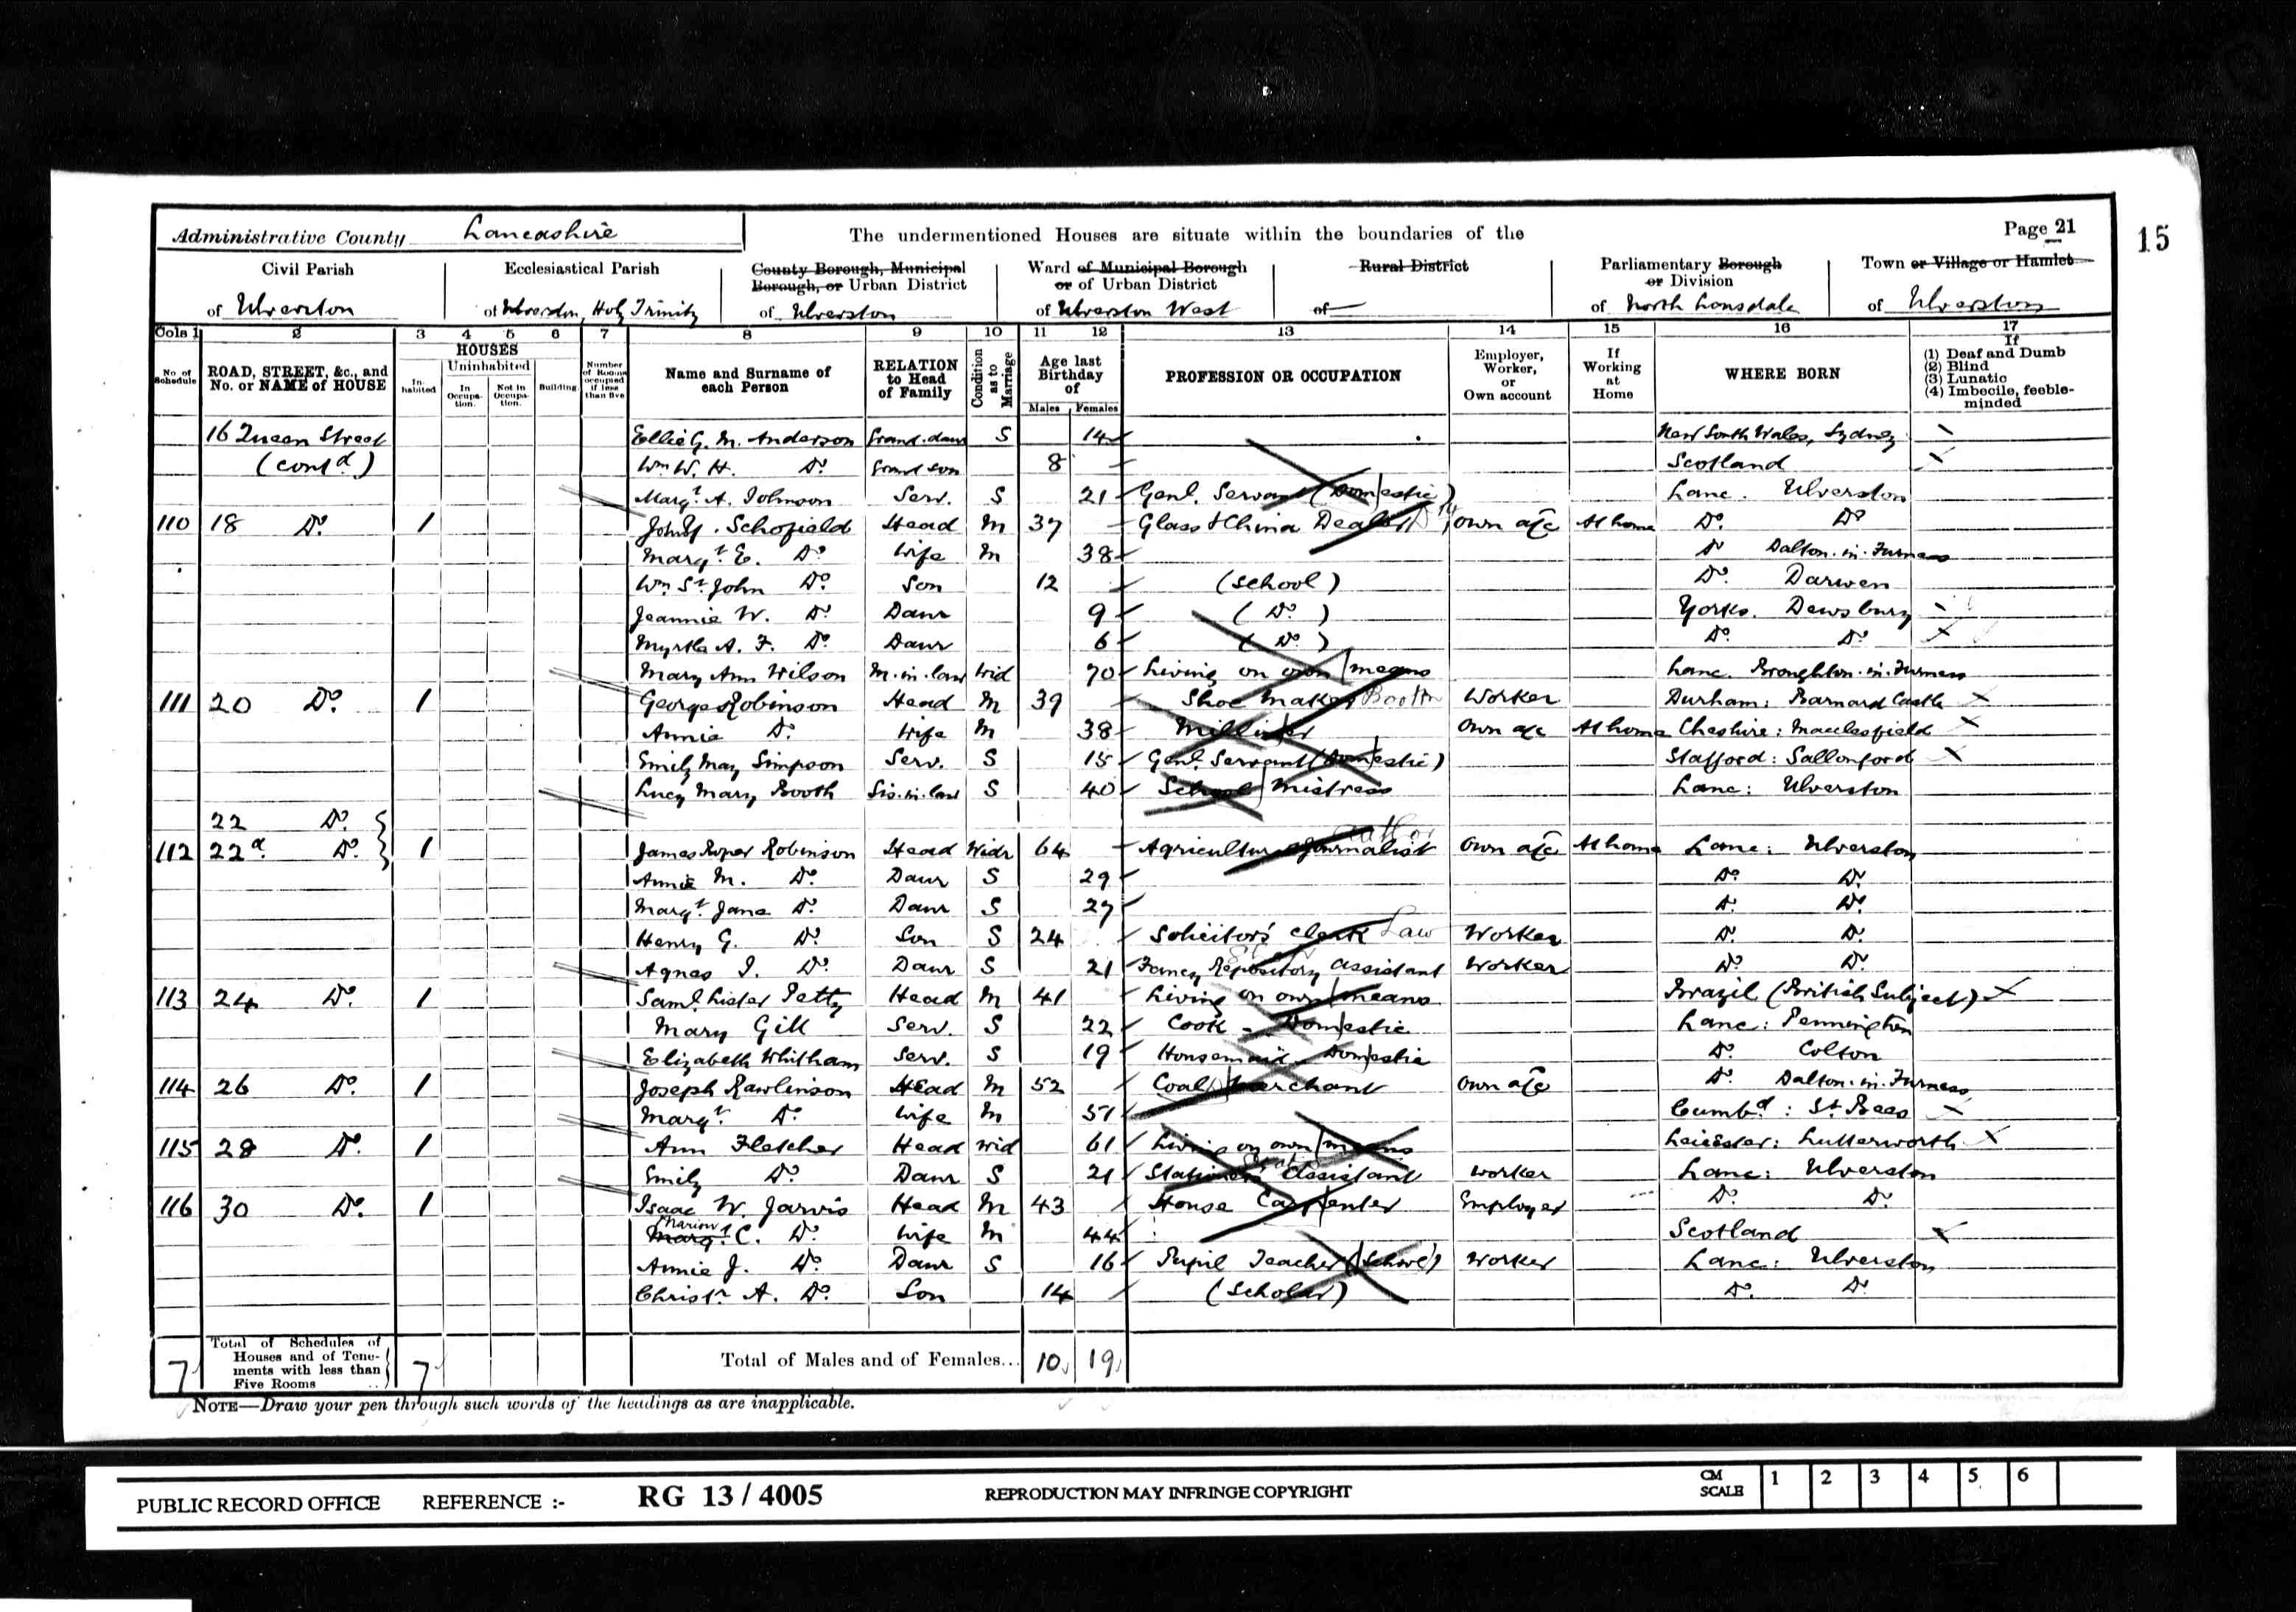 Administrative County Lancashire The undermentioned Houses are situate within the boundaries of the Page 21
15
Civil Parish of Ulverston
Ecclesiastical Parish of Ulverston, Holy Trinity
County Borough, Municipal Borough, or Urban District of Ulverston
Ward of Municipal Borough or of Urban District of Ulverston West
Rural District of —
Parliamentary Borough or Division of North Lonsdale
Town or Village or Hamlet of Ulverston
Cols 1 2 3 4 5 6 7 8 9 10 11 12 13 14 15 16 17
No. of Schedule
ROAD, STREET, &c., and No. or NAME of HOUSE
HOUSES
Inhabited
Uninhabited
In Occupation.
Not in Occupation.
Building
Number of Rooms occupied if less than five
Name and Surname of each Person
RELATION to Head of Family
Condition as to Marriage
Age last Birthday of
Males Females
PROFESSION OR OCCUPATION
Employer, Worker, or Own account
If Working at Home
WHERE BORN
If (1) Deaf and Dumb (2) Blind (3) Lunatic (4) Imbecile, feeble-minded
16 Queen Street Ellie G. M. Anderson Grand.daur S 14 New South Wales, Sydney
(contd) Wm W. H. Do Grand son 8 Scotland
Margt. A. Johnson Serv. S 21 Genl. Servant (Domestic) Lanc. Ulverston
110 18 Do. 1 John Y. Schofield Head M 37 Glass & China Dealer own a/c At home Do. Do
Margt. E. Do Wife M 38 Do Dalton-in-Furness
Wm St. John Do Son 12 (School) Do. Darwen
Jeannie W. Do Daur 9 (Do) Yorks. Dewsbury
Myrtle A. F. Do Daur 6 (Do) Do. Do.
Mary Ann Wilson M.in.law Wid 70 Living on own means Lanc. Broughton-in-Furness
111 20 Do. 1 George Robinson Head M 39 Shoe Maker Boot Worker Durham: Barnard Castle
Annie Do. Wife M 38 Milliner Own a/c At home Cheshire: Macclesfield
Emily May Simpson Serv. S 15 Genl. Servant (Domestic) Stafford: Sallonford
Lucy Mary Booth Sis.in.law S 40 School Mistress Lanc: Ulverston
22 Do.
112 22a. Do. 1 James Roper Robinson Head Widr 64 Agricultural Journalist Author Own a/c At home Lanc: Ulverston
Annie M. Do Daur S 29 Do. Do.
Margt. Jane Do Daur S 27 Do. Do.
Henry G. Do. Son S 24 Solicitors' Clerk Law Worker Do. Do.
Agnes I. Do. Daur S 21 Fancy Repository Assistant Worker Do. Do.
113 24 Do. 1 Saml. Lister Petty Head M 41 Living on own means Brazil (British Subject)
Mary Gill Serv. S 22 Cook - Domestic Lanc: Pennington
Elizabeth Whitham Serv. S 19 Housemaid Domestic Do. Colton
114 26 Do. 1 Joseph Rawlinson Head M 52 Coal Merchant Own a/c Do. Dalton-in-Furness
Margt. Do. Wife M 57 Cumbd: St. Bees
115 28 Do. 1 Ann Fletcher Head Wid 61 Living on own means Leicester: Lutterworth
Emily Do. Daur S 21 Stationers' Assistant Worker Lanc: Ulverston
116 30 Do. 1 Isaac W. Jarvis Head M 43 House Carpenter Employer Do. Do.
Margt. Marion C. Do. Wife M 44 Scotland
Annie J. Do. Daur S 16 Pupil Teacher (School) Worker Lanc: Ulverston
Christr. A. Do. Son 14 (Scholar) Do. Do.
7 Total of Schedules of Houses and of Tenements with less than Five Rooms .. 7 Total of Males and of Females... 10 19
NOTE—Draw your pen through such words of the headings as are inapplicable.
PUBLIC RECORD OFFICE REFERENCE :- RG 13 / 4005 REPRODUCTION MAY INFRINGE COPYRIGHT CM SCALE 1 2 3 4 5 6